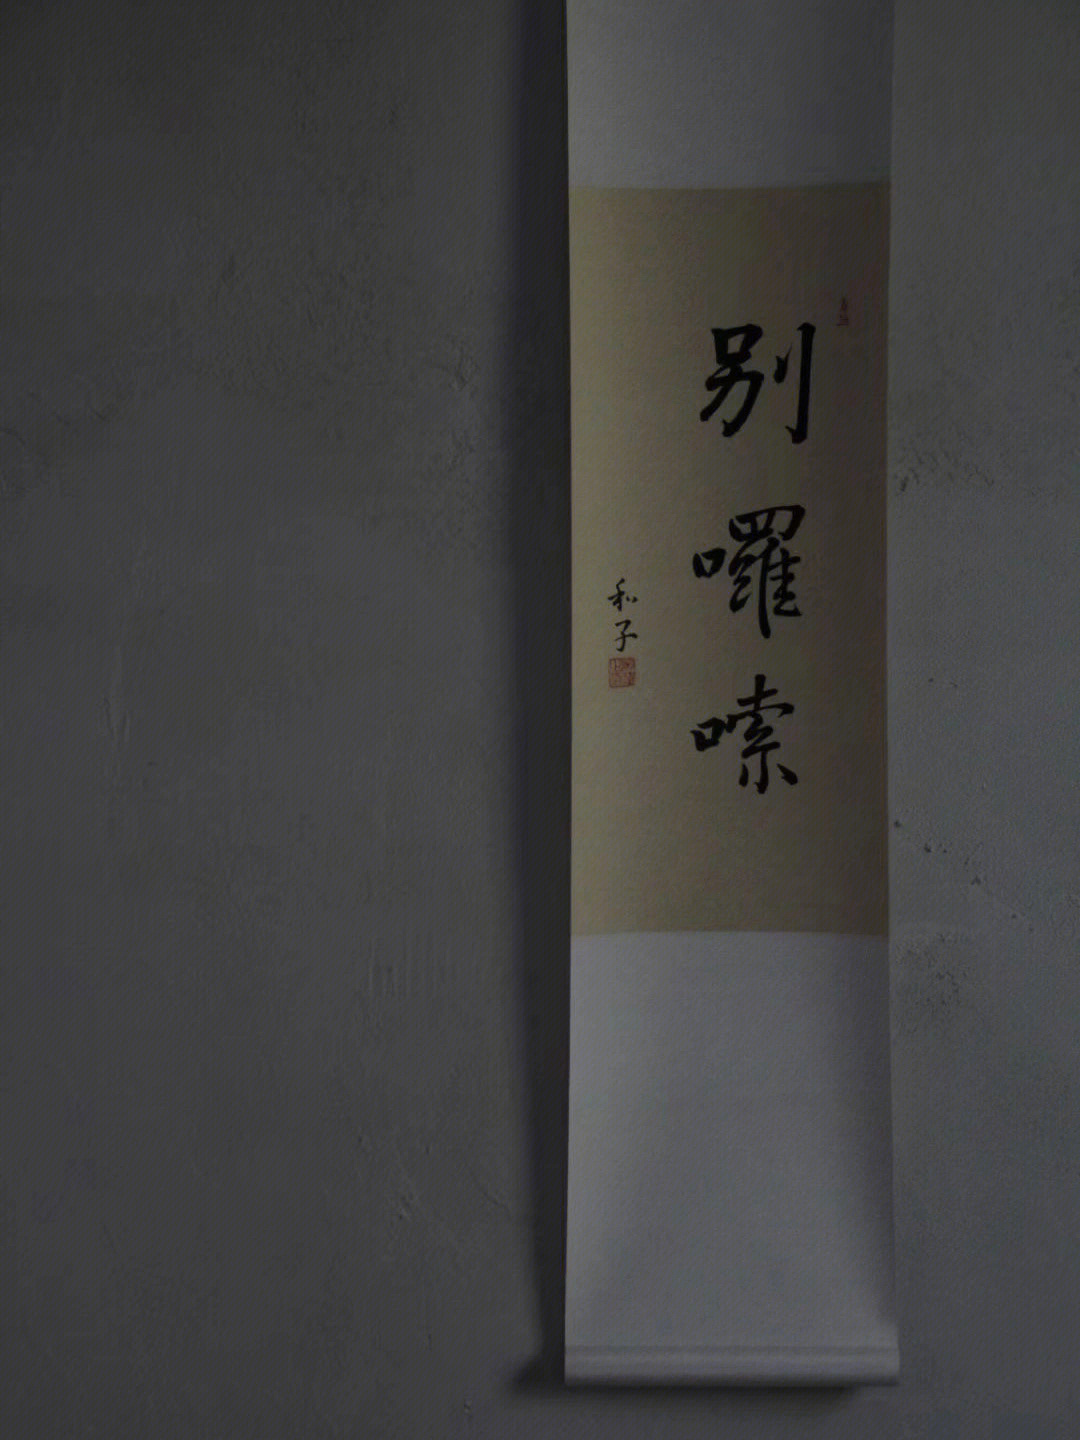 别囉嗦
和子